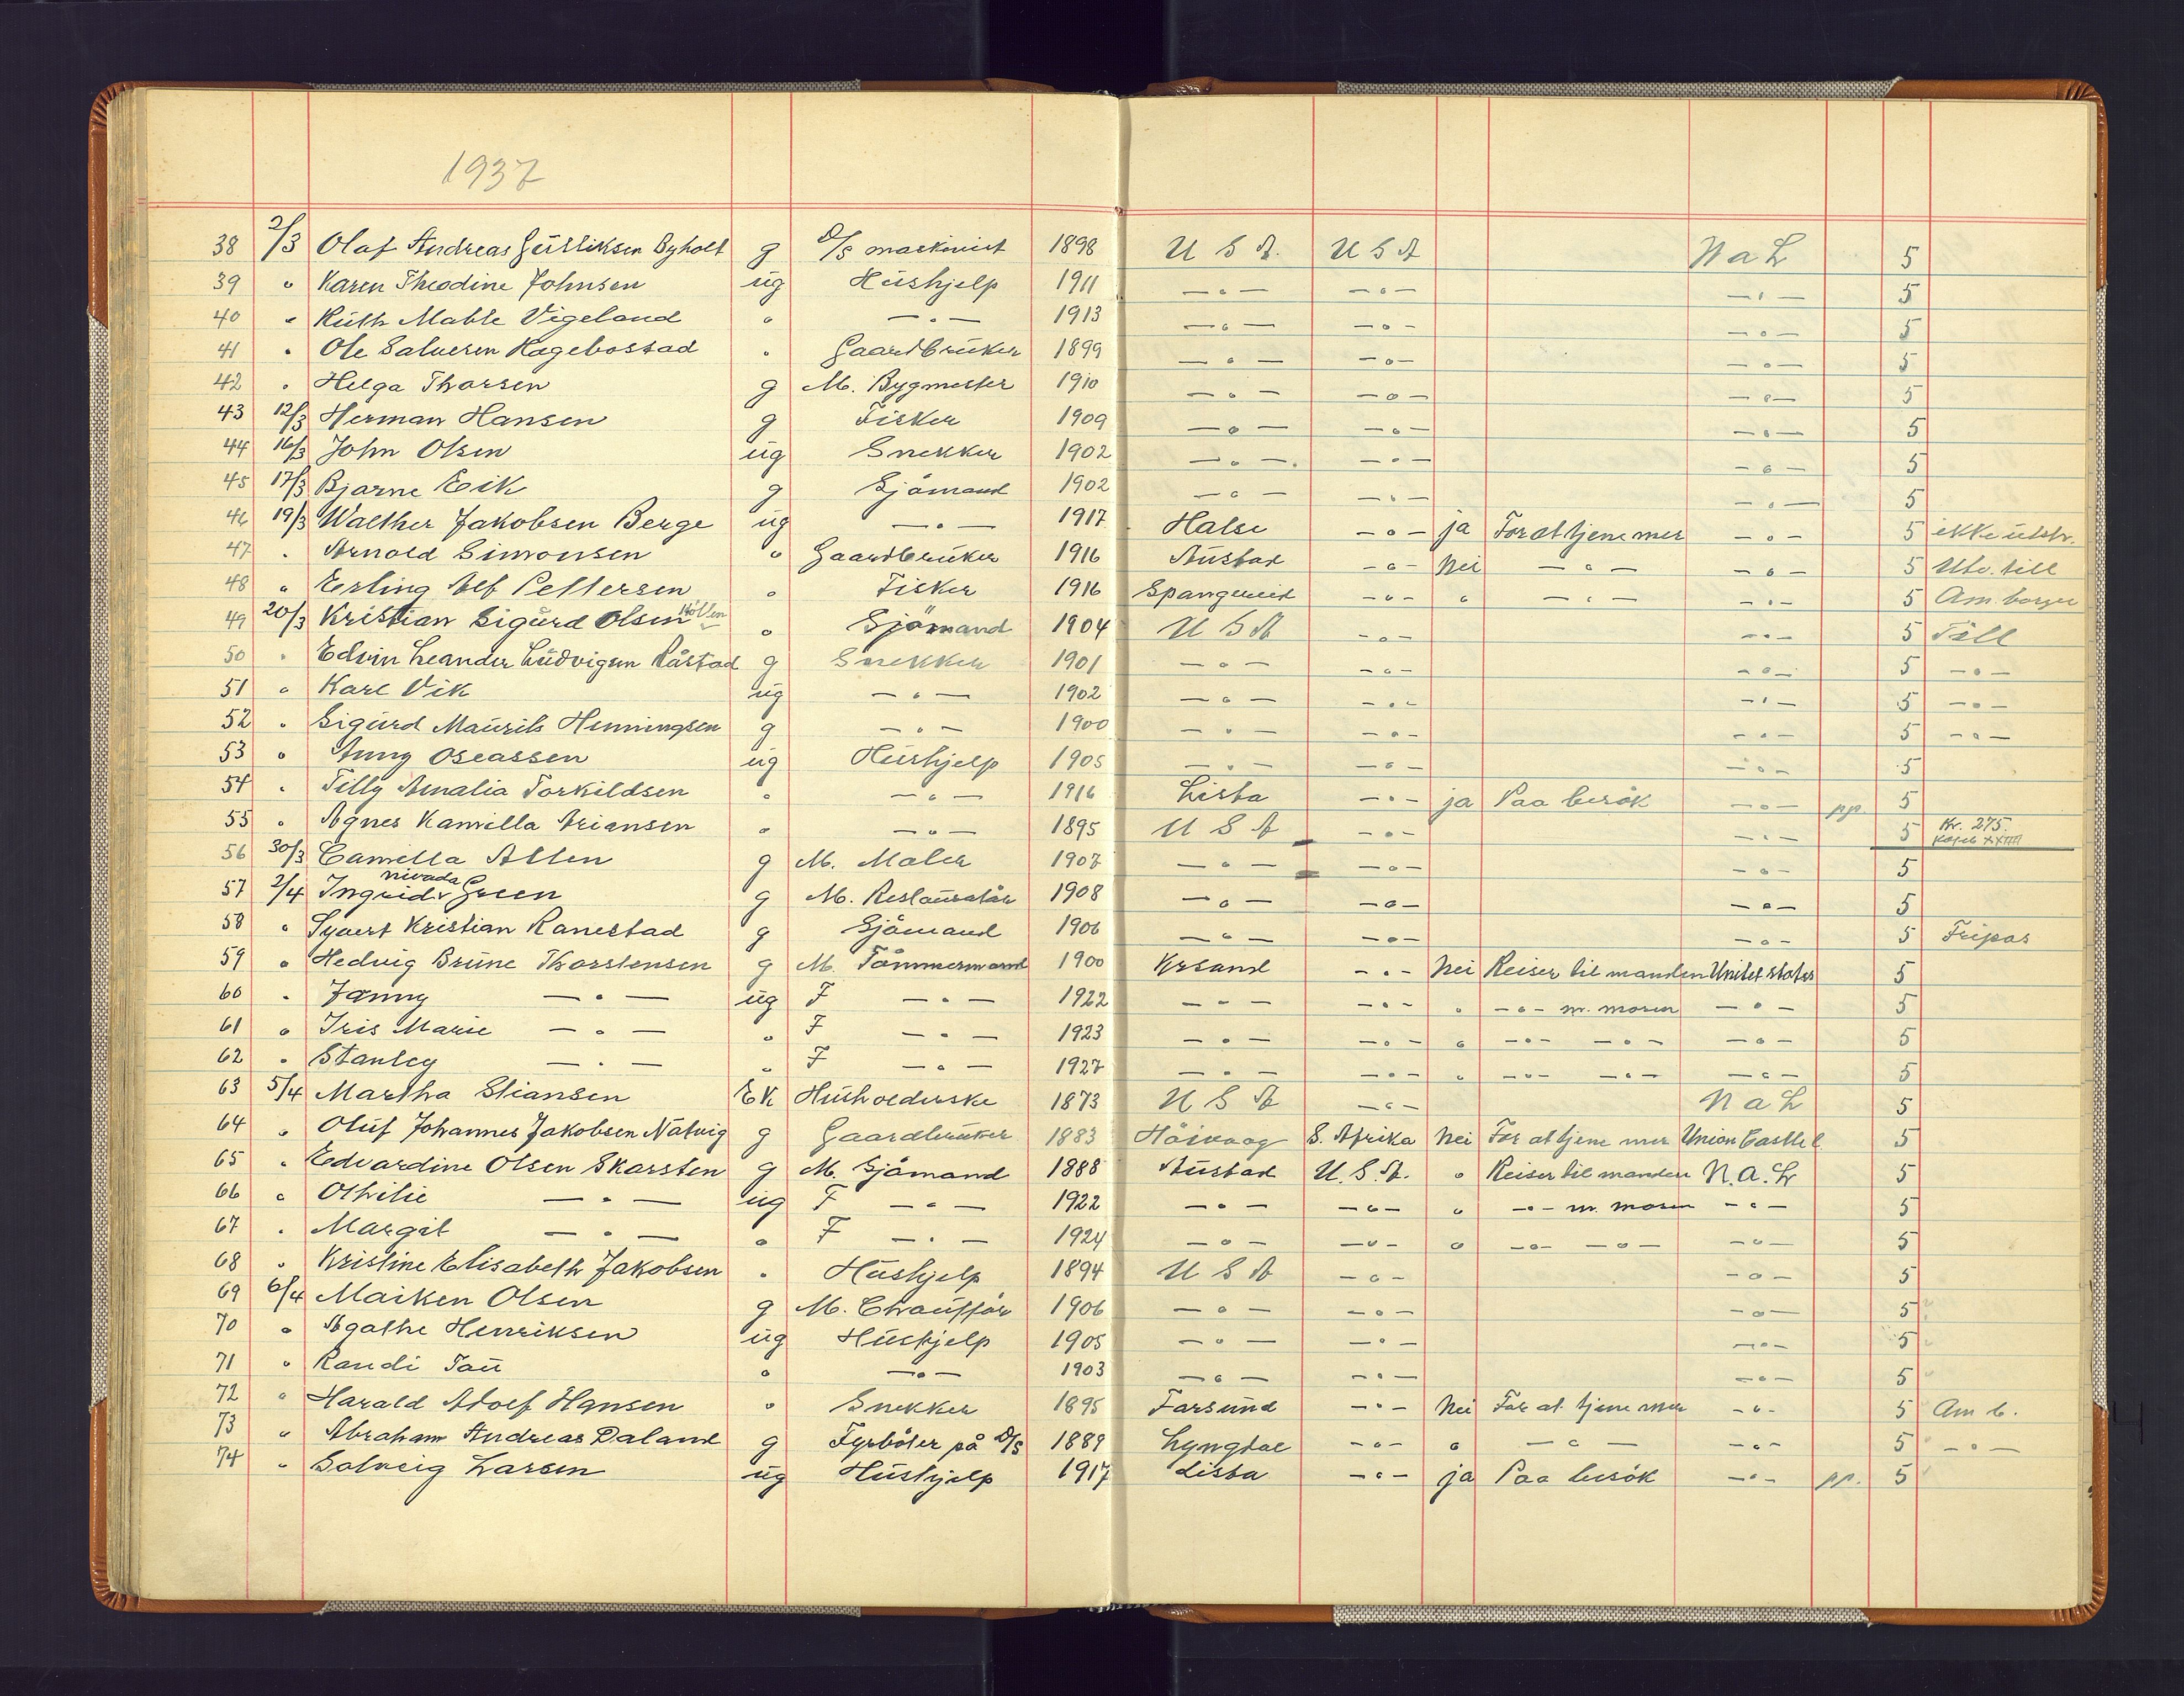 1937
38 2/3 Olaf Andreas Gulliksen Byholt g D/S maskinist 1898 U S A. U S A N a L 5
39 " Karen Theodine Johnsen ug Hushjelp 1911 — " — — " — — " — 5
40 " Ruth Mable Vigeland " — " — 1913 — " — — " — — " — 5
41 " Ole Salvesen Hagebostad " Gaardbruker 1899 — " — — " — — " — 5
42 " Helga Thorsen g M. Bygmester 1910 — " — — " — — " — 5
43 12/3 Herman Hansen g Fisker 1909 — " — — " — — " — 5
44 16/3 John Olsen ug Snekker 1902 — " — — " — — " — 5
45 17/3 Bjarne Eik g Sjömand 1902 — " — — " — — " — 5
46 19/3 Walther Jakobsen Berge ug — " — 1917 Halse — " — ja For at tjene mer — " — 5 ikke
47 " Arnold Simonsen " Gaardbruker 1916 Austad — " — Nei — " — — " — 5 Utv. till
48 " Erling Alf Pettersen " Fisker 1916 Spangereid — " — " — " — — " — 5 Am. borger
49 20/3 Kristian Sigurd Olsen Höllen " Sjömand 1904 U S A — " — — " — 5 Till
50 " Edvin Leander Ludvigsen Råstad g Snekker 1901 — " — — " — — " — 5 — " —
51 " Karl Vik ug — " — 1902 — " — — " — — " — 5 — " —
52 " Sigurd Maurits Henningsen g — " — 1900 — " — — " — — " — 5 — " —
53 " Anny Oseassen ug Hushjelp 1905 — " — — " — — " — 5
54 " Tilly Amalia Torkildsen " — " — 1916 Lista — " — ja Paa besök — " — pp. 5
55 " Agnes Kamilla Ariansen " — " — 1895 U S A — " — — " — 5 Kr. 275.
56 30/3 Camilla Allen g M. Maler 1907 — " — — " — — " — 5
57 2/4 Ingrid Nivada Green g M. Restauratör 1908 — " — — " — — " — 5
58 " Syvert Kristian Ranestad g Sjömand 1906 — " — — " — — " — 5 Fripas
59 " Hedvig Brune Thorstensen g M. Tömmermand 1900 Krsand — " — Nei Reiser til manden Unitet states 5
60 " Fanny — " — ug F — " — 1922 — " — — " — " — " — m. moren — " — 5
61 " Iris Marie — " — " F — " — 1923 — " — — " — " — " — — " — — " — 5
62 " Stanley — " — " F — " — 1927 — " — — " — " — " — — " — — " — 5
63 5/4 Martha Stiansen EK Husholderske 1873 U S A — " — N a L 5
64 " Oluf Johannes Jakobsen Nätvig g Gaardbruker 1883 Höivaag S. Afrika Nei For at tjene mer Union Casttel 5
65 " Edvardine Olsen Skarsten g M. Sjömand 1888 Austad U. S. A. " Reiser til manden N. A. L 5
66 " Othilie — " — ug F — " — 1922 — " — — " — " — " — m. moren — " — 5
67 " Margit — " — " F — " — 1924 — " — — " — " — " — — " — — " — 5
68 " Kristine Elisabeth Jakobsen " Hushjelp 1894 U S A — " — — " — 5
69 6/4 Maiken Olsen g M. Chaufför 1906 — " — — " — — " — 5
70 " Agathe Henriksen ug Hushjelp 1905 — " — — " — — " — 5
71 " Randi Tau " — " — 1903 — " — — " — — " — 5
72 " Harald Adolf Hansen " Snekker 1895 Farsund — " — Nei For at tjene mer — " — 5 Am b.
73 " Abraham Andreas Daland g Fyrböter på D/S 1889 Lyngdal — " — " — " — — " — 5 — " —
74 " Solveig Larsen ug Hushjelp 1917 Lista — " — ja Paa besök — " — pp. 5